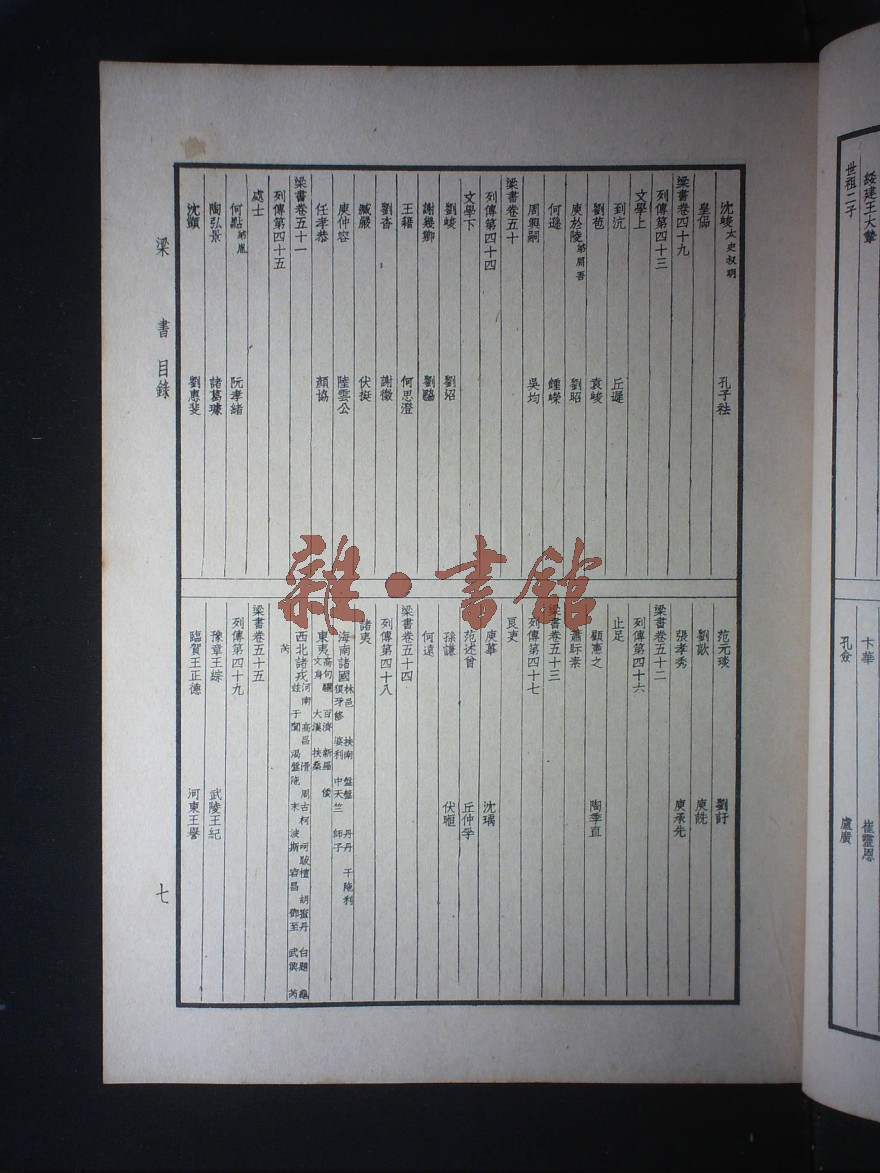 沈峻 太史叔明 孔子袪
皇侃
梁書卷四十九
列傳第四十三
文學上
到沆 丘遲
劉苞 袁峻
庾於陵 弟肩吾 劉昭
何遜 鍾嶸
周興嗣 吳均
梁書卷五十
列傳第四十四
文學下
劉峻 劉沼
謝幾卿 劉勰
王籍 何思澄
劉杳 謝徵
臧嚴 伏挺
庾仲容 陸雲公
任孝恭 顏協
梁書卷五十一
列傳第四十五
處士
何點 弟胤 阮孝緒
陶弘景 諸葛璩
沈顗 劉惠斐
范元琰 劉訏
劉歊 庾詵
張孝秀 庾承先
梁書卷五十二
列傳第四十六
止足
顧憲之 陶季直
蕭眎素
梁書卷五十三
列傳第四十七
良吏
庾蓽 沈瑀
范述曾 丘仲孚
孫謙 伏暅
何遠
梁書卷五十四
列傳第四十八
諸夷
海南諸國 林邑 扶南 盤盤 丹丹 干陁利
狼牙脩 婆利 中天竺 師子
東夷 高句驪 百濟 新羅 倭
文身 大漢 扶桑
西北諸戎 河南 高昌 滑 周古柯 呵跋檀 胡蜜丹 白題 龜
茲 于闐 渴盤陁 末 波斯 宕昌 鄧至 武興 芮
芮
梁書卷五十五
列傳第四十九
豫章王綜 武陵王紀
臨賀王正德 河東王譽
梁書 目錄
七
雜·書館
綏建王大摯
世祖二子
卞華 崔靈恩
孔僉 盧廣